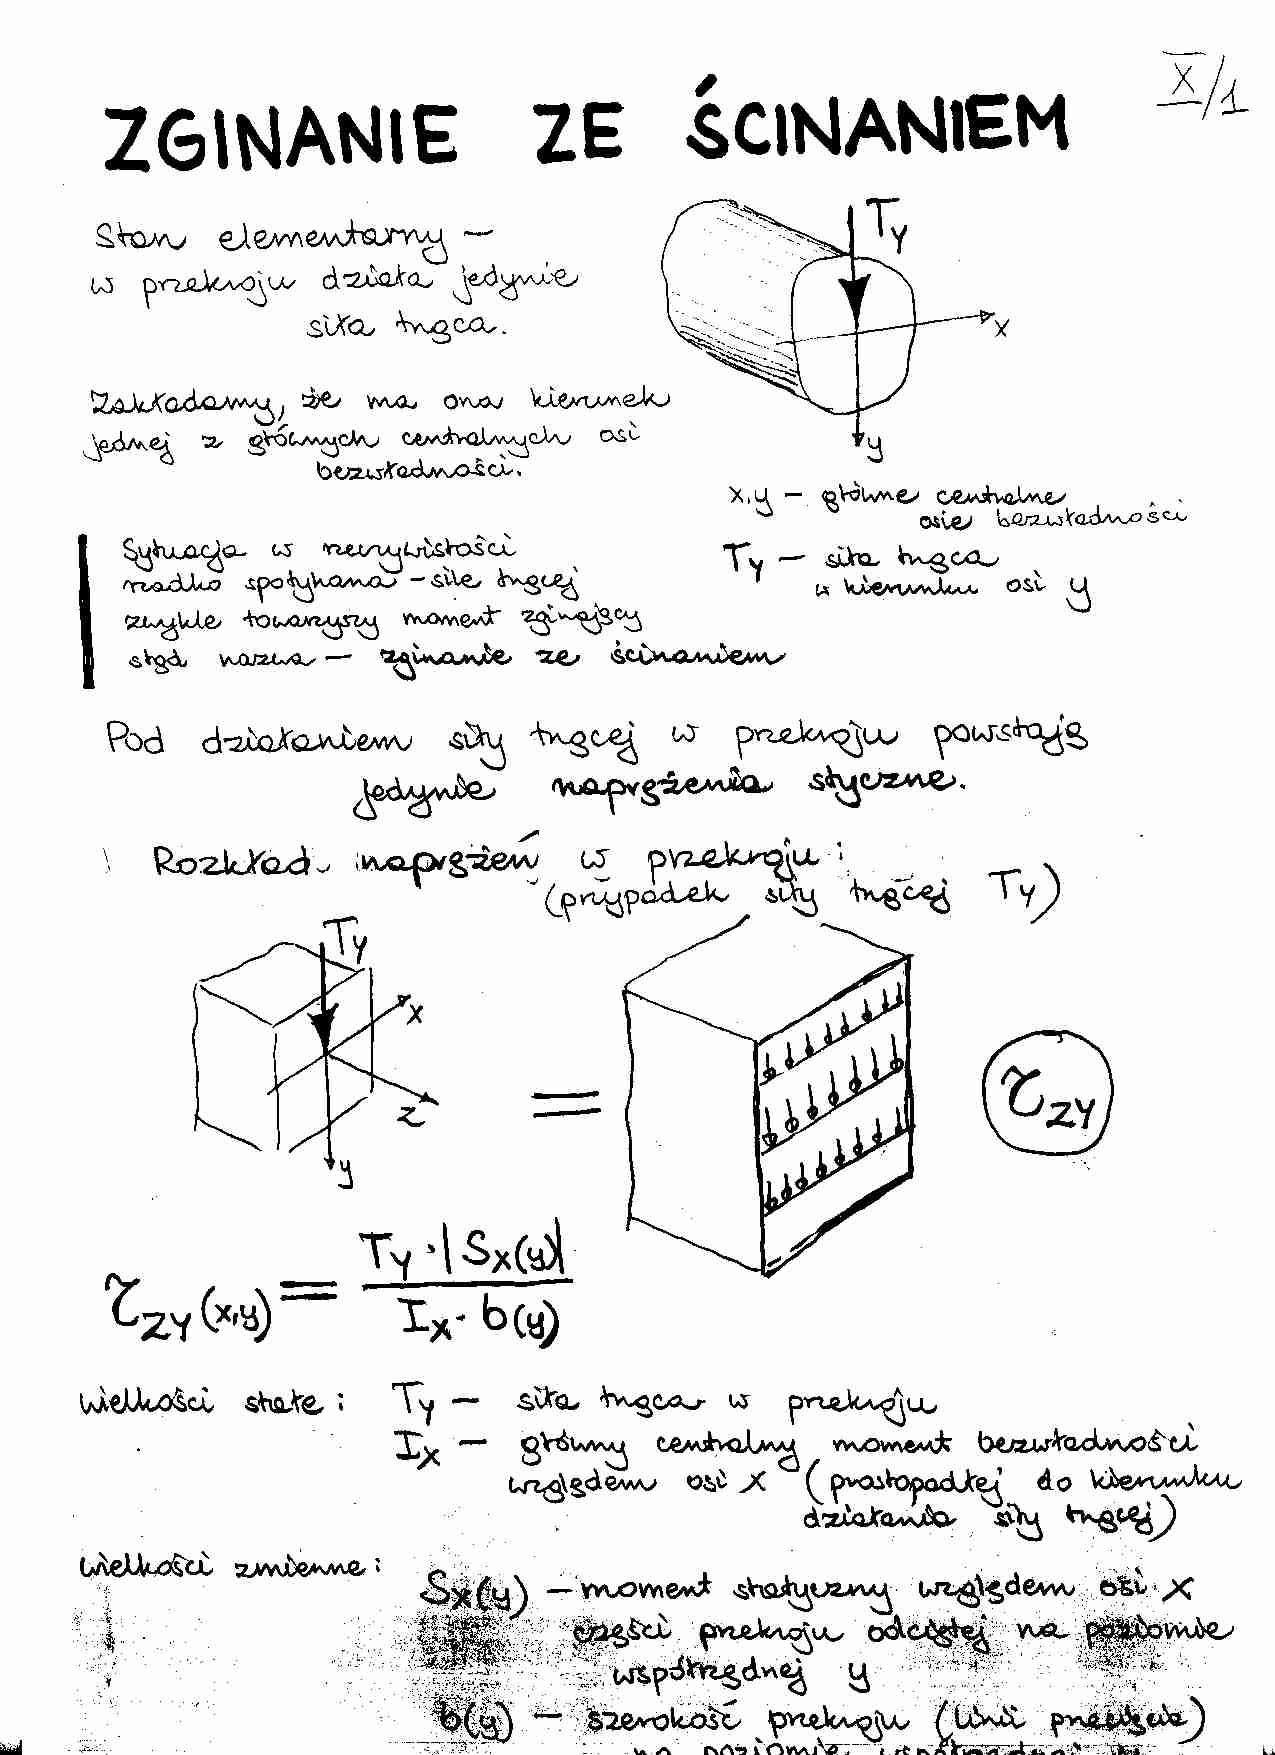 X/1
ZGINANIE ZE ŚCINANIEM
Stan elementarny –
w przekroju działa jedynie
siła tnąca.
Ty
x
y
Zakładamy, że ma ona kierunek
jednej z głównych centralnych osi
bezwładności.
x,y – główne centralne
osie bezwładności
Ty – siła tnąca
w kierunku osi y
Sytuacja w rzeczywistości
rzadko spotykana – sile tnącej
zwykle towarzyszy moment zginający
stąd nazwa – zginanie ze ścinaniem
Pod działaniem siły tnącej w przekroju powstają
jedynie naprężenia styczne.
Rozkład naprężeń w przekroju:
(przypadek siły tnącej Ty)
Ty
x
z
y
=
τzy
τzy(x,y) = Ty·|Sx(y)| / Ix·b(y)
Wielkości stałe: Ty – siła tnąca w przekroju
Ix – główny centralny moment bezwładności
względem osi x (prostopadłej do kierunku
działania siły tnącej)
Wielkości zmienne:
Sx(y) – moment statyczny względem osi x
części przekroju odciętej na poziomie
współrzędnej y
b(y) – szerokość przekroju (linii przecięcia)
na poziomie współrzędnej y